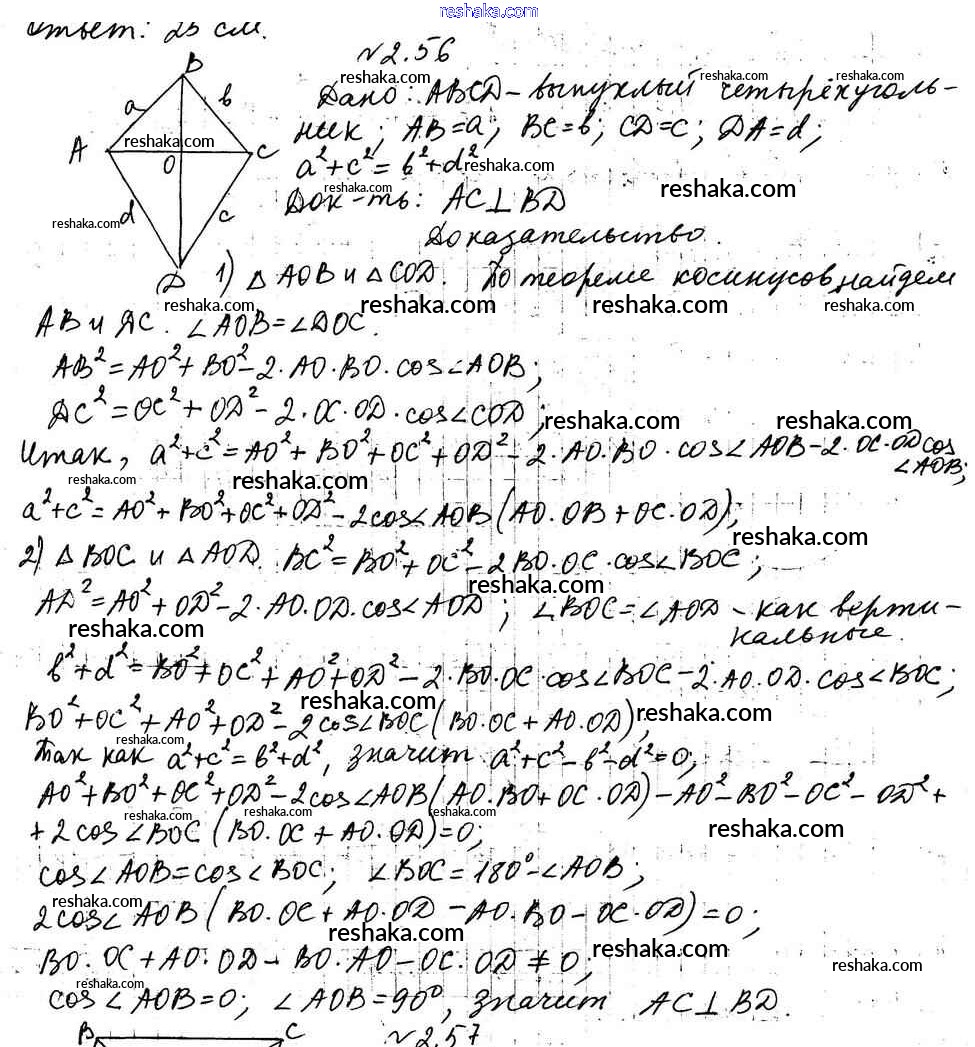 gdz.reshaka.com
Ответ: 25 см.
№2.56
Дано: ABCD – выпуклый четырёхуголь-
ник; AB=a; BC=b; CD=c; DA=d;
a²+c²=b²+d²
Док-ть: AC⊥BD
Доказательство.
B
a
b
A
O
C
d
c
D
1) △AOB и △COD. По теореме косинусов найдём
AB и DC. ∠AOB=∠DOC.
AB²=AO²+BO²-2·AO·BO·cos∠AOB;
DC²=OC²+OD²-2·OC·OD·cos∠COD;
Итак, a²+c²=AO²+BO²+OC²+OD²-2·AO·BO·cos∠AOB-2·OC·OD cos
∠AOB;
a²+c²=AO²+BO²+OC²+OD²-2cos∠AOB(AO·OB+OC·OD);
2) △BOC и △AOD. BC²=BO²+OC²-2BO·OC·cos∠BOC;
AD²=AO²+OD²-2·AO·OD·cos∠AOD; ∠BOC=∠AOD – как верти-
кальные.
b²+d²=BO²+OC²+AO²+OD²-2·BO·OC·cos∠BOC-2·AO·OD·cos∠BOC;
BO²+OC²+AO²+OD²-2cos∠BOC(BO·OC+AO·OD);
Так как a²+c²=b²+d², значит a²+c²-b²-d²=0;
AO²+BO²+OC²+OD²-2cos∠AOB(AO·BO+OC·OD)-AO²-BO²-OC²-OD²+
+2cos∠BOC(BO·OC+AO·OD)=0;
cos∠AOB=cos∠BOC; ∠BOC=180°-∠AOB;
2cos∠AOB(BO·OC+AO·OD-AO·BO-OC·OD)=0;
BO·OC+AO·OD-BO·AO-OC·OD≠0;
cos∠AOB=0; ∠AOB=90°, значит AC⊥BD.
B
C
№2.57
reshaka.com